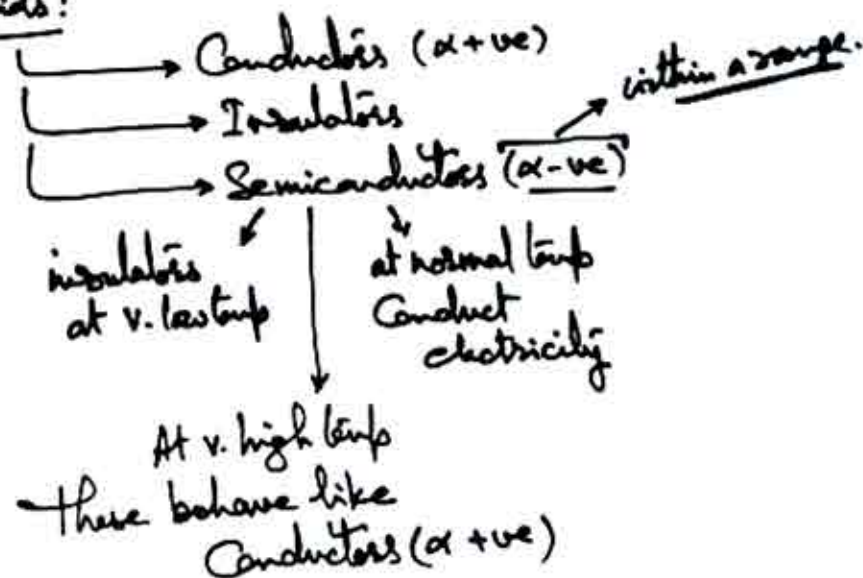 Conductors (α +ve)
Insulators
Semiconductors (α -ve)
within a range.
insulators
at v. low temp
at normal temp
Conduct
electricity
At v. high temp
These behave like
Conductors (α +ve)